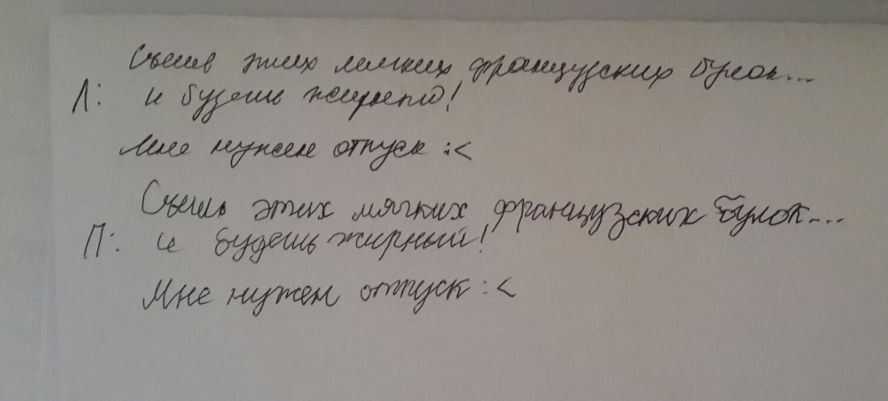 Съешь этих мягких французских булок...
Л: и будешь жирный!
Мне нужен отпуск :<
Съешь этих мягких французских булок...
П: и будешь жирный!
Мне нужен отпуск :<